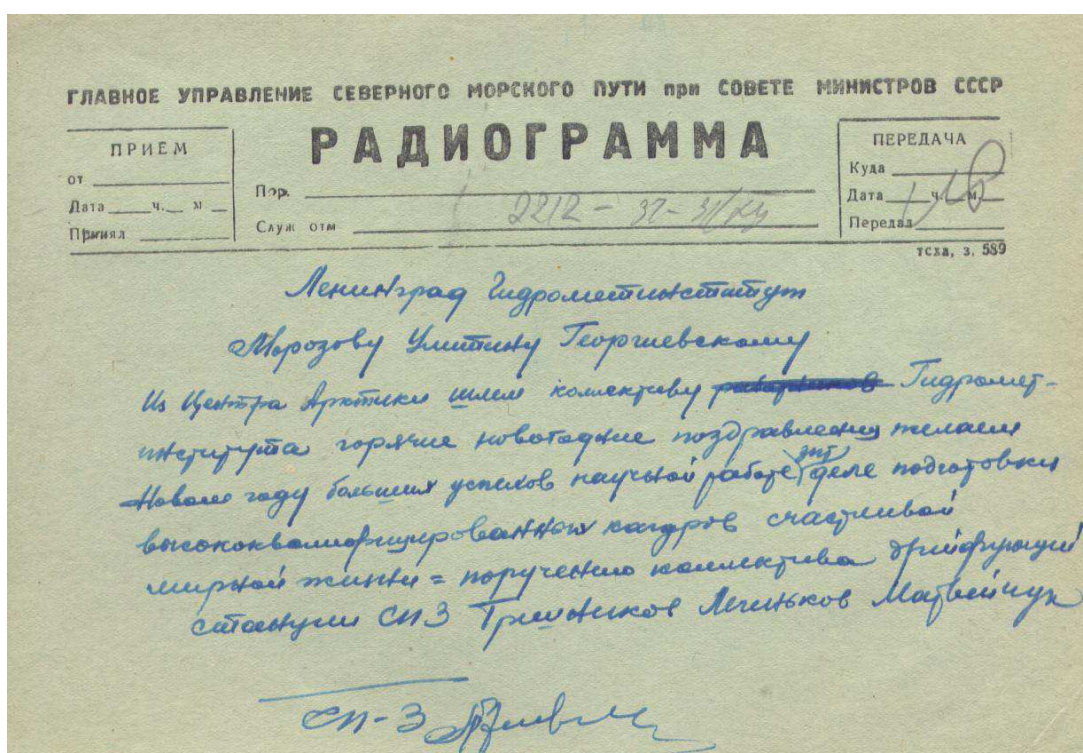 ГЛАВНОЕ УПРАВЛЕНИЕ СЕВЕРНОГО МОРСКОГО ПУТИ при СОВЕТЕ МИНИСТРОВ СССР
ПРИЕМ
от
Дата ч. м
Принял
РАДИОГРАММА
Пор.
Служ отм
2212 -
ПЕРЕДАЧА
Куда
Дата ч. м.
Передал
тсха, з. 589
Ленинград Гидрометинститут
Морозову Улитину Георгиевскому
Из Центра Арктики шлем коллективу работников Гидромет-
института горячие новогодние поздравления желаем
Новом году больших успехов научной работе зпт деле подготовки
высококвалифицированных кадров счастливой
мирной жизни = поручению коллектива дрейфующей
станции СП3 Трешников Матвейчук
СП-3